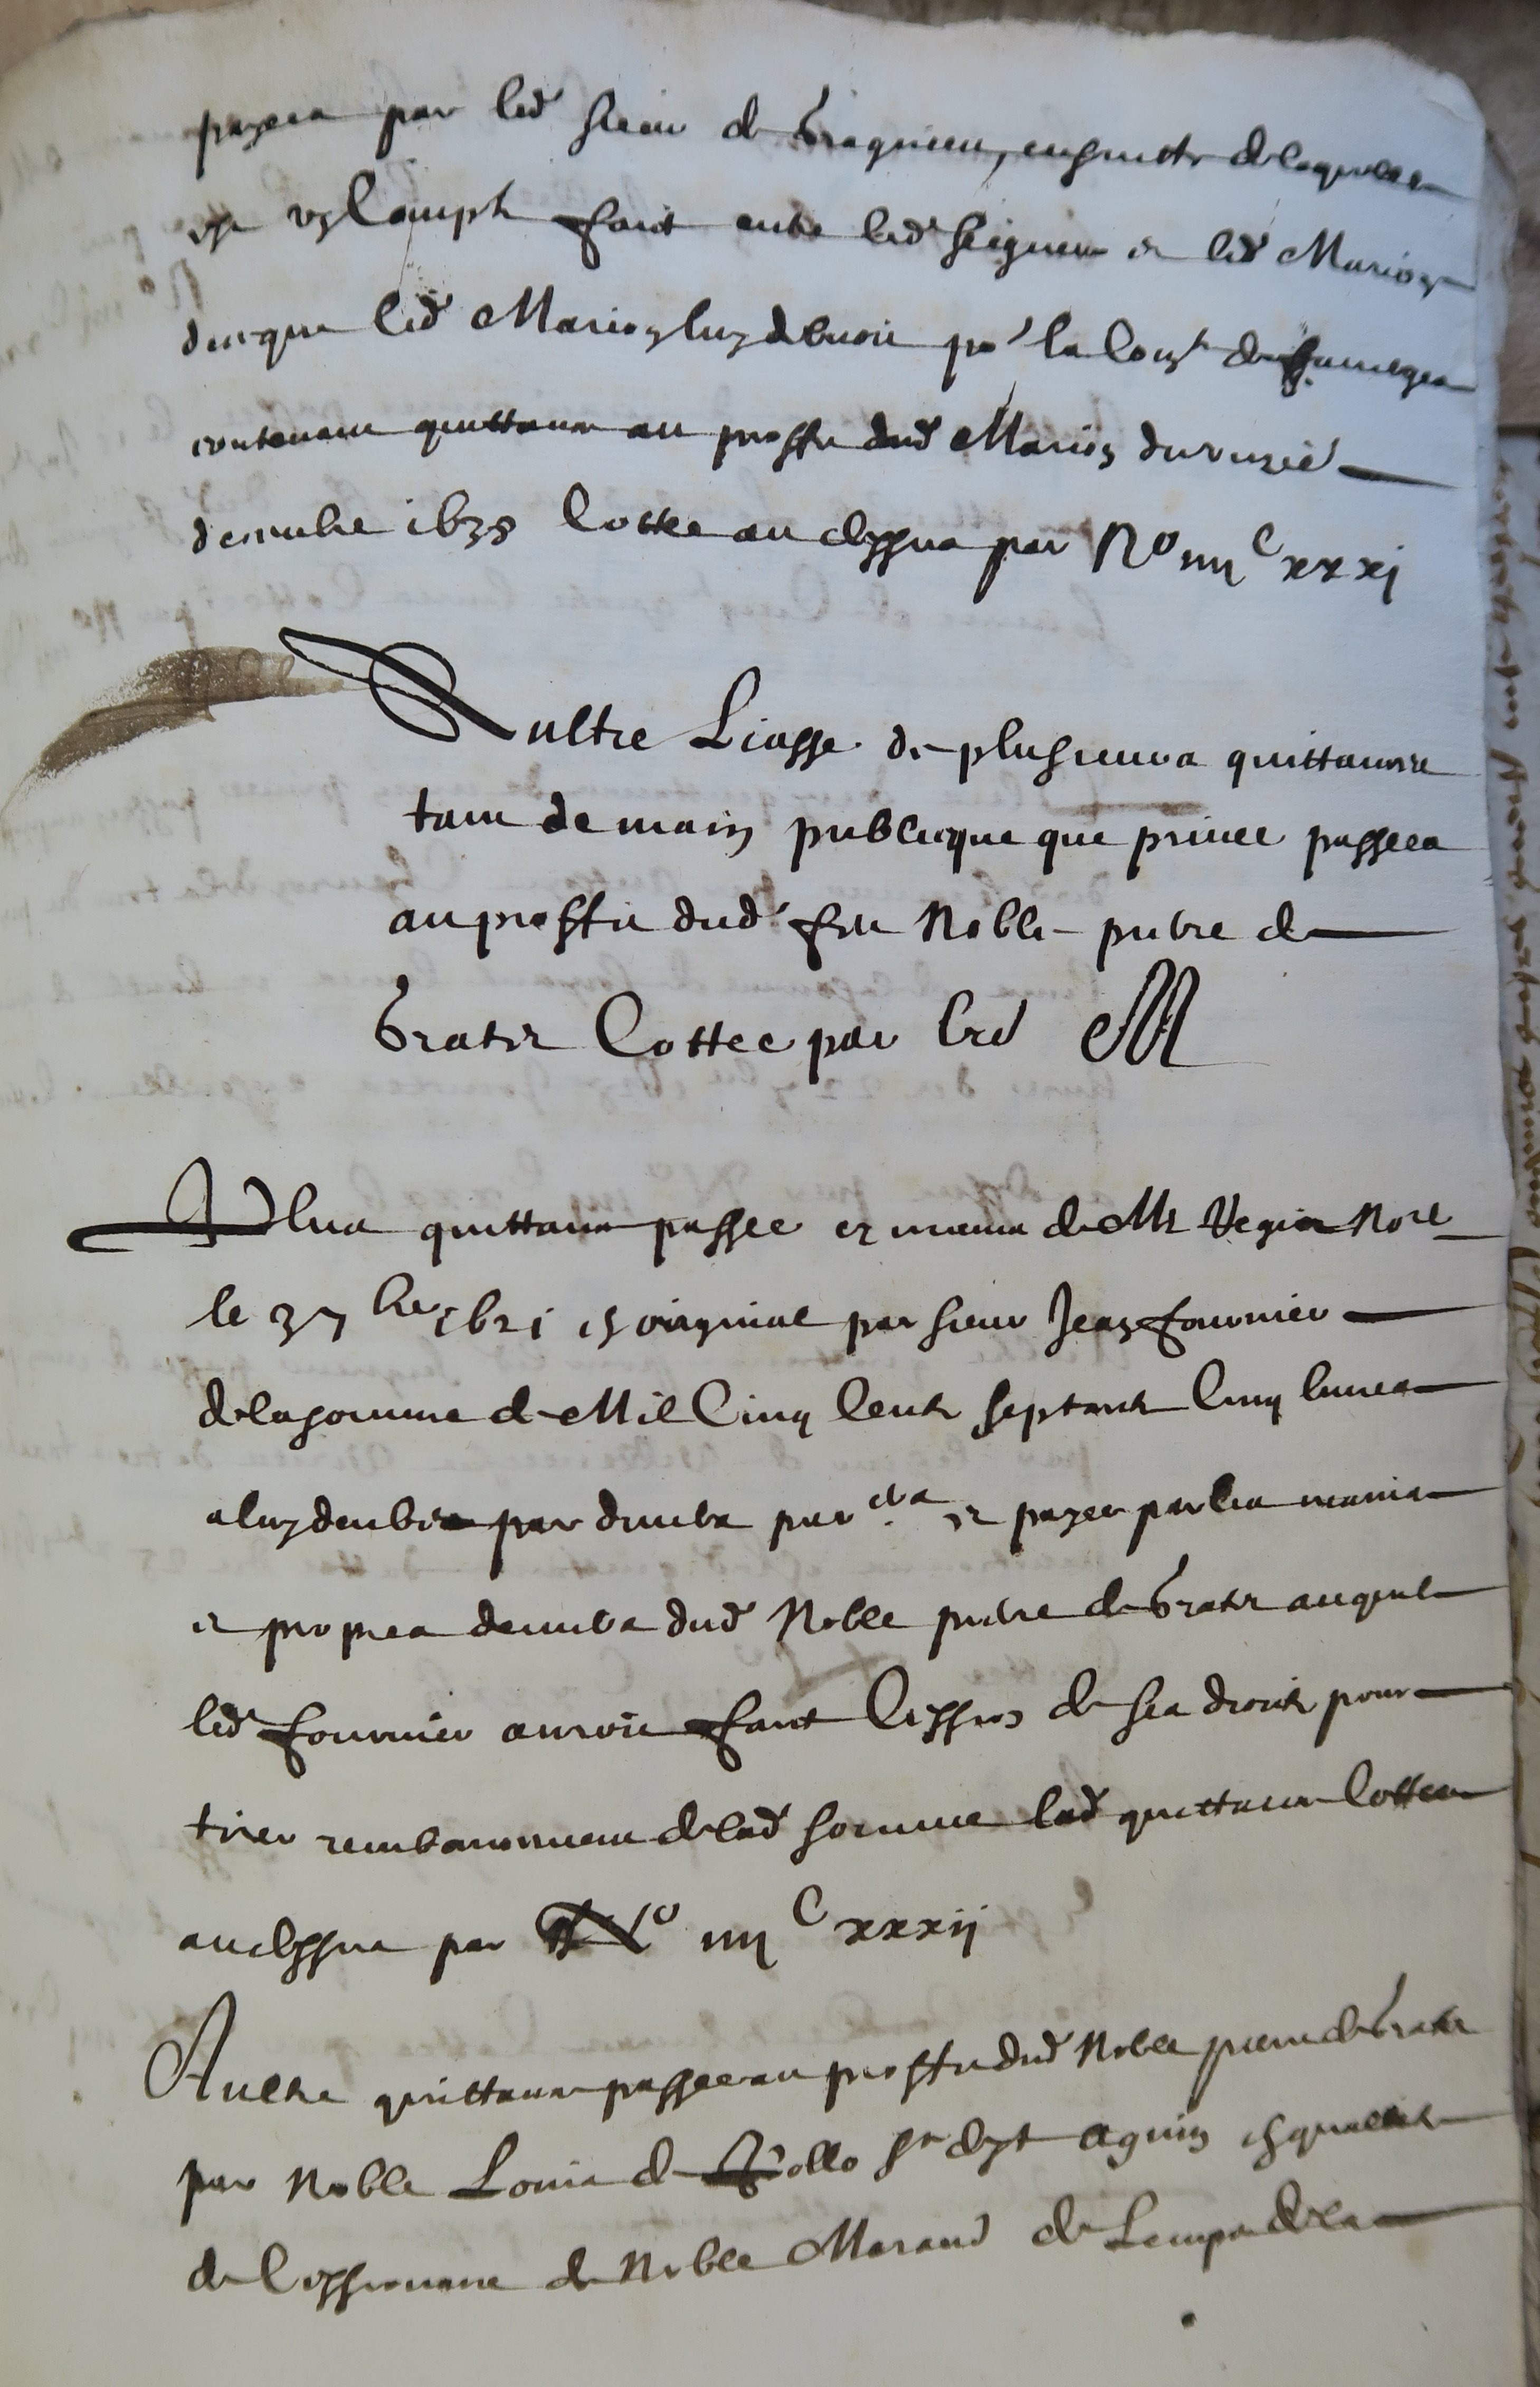 payera par led sieur de Bragnieu, ensuitte de laquelle
est ung compte faict entre led seigneur et led Marion
de ce que led Marion luy debvoit po' la
contenant quittance au proffit dud Marion du
decembre 1638 Cottee au dessus par No iiii C xxxi
Aultre Liasse de plusieurs quittances
tant de main publicque que privee passees
au proffit dud feu Noble pierre de
Bratet Cottee par lre M
Plus quittance passee es mains de Me Vegier Nore
le 1621 en original par sieur Jean fournier
de la somme de Mil Cinq Cents septante Cinq livres
a luy deubes par divers par.ers et payee par les mains
et propres deniers dud Noble pierre de Bratet auquel
led fournier auroit faict Cession de ses droits pour
tirer remboursement de lad somme lad quittance Cottee
au dessus par No iiii C xxxii
Aultre quittance passee au proffit dud Noble pierre de Bratet
par Noble Louis de Rollo sr dyt Aguin en qualité
de Cessionnaire de Noble Maraud de Lemps de la